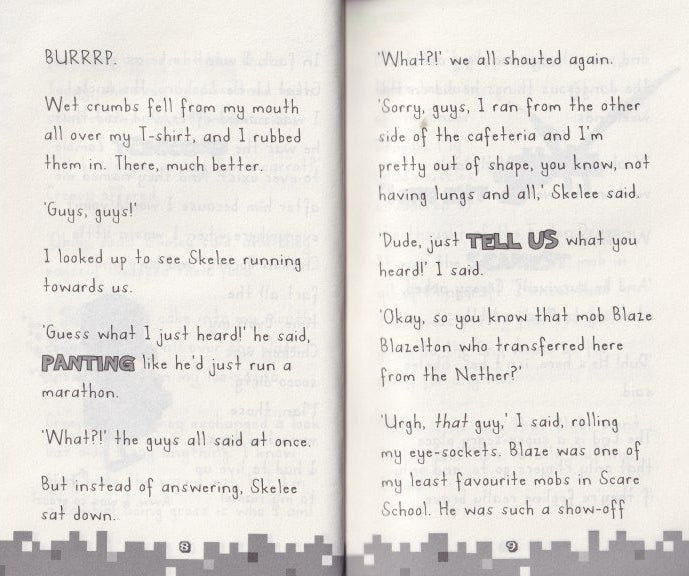 BURRRP.
Wet crumbs fell from my mouth
all over my T-shirt, and I rubbed
them in. There, much better.
'Guys, guys!'
I looked up to see Skelee running
towards us.
'Guess what I just heard!' he said,
PANTING like he'd just run a
marathon.
'What?!' the guys all said at once.
But instead of answering, Skelee
sat down.
8
'What?!' we all shouted again.
'Sorry, guys, I ran from the other
side of the cafeteria and I'm
pretty out of shape, you know, not
having lungs and all,' Skelee said.
'Dude, just TELL US what you
heard!' I said.
'Okay, so you know that mob Blaze
Blazelton who transferred here
from the Nether?'
'Urgh, that guy,' I said, rolling
my eye-sockets. Blaze was one of
my least favourite mobs in Scare
School. He was such a show-off
9